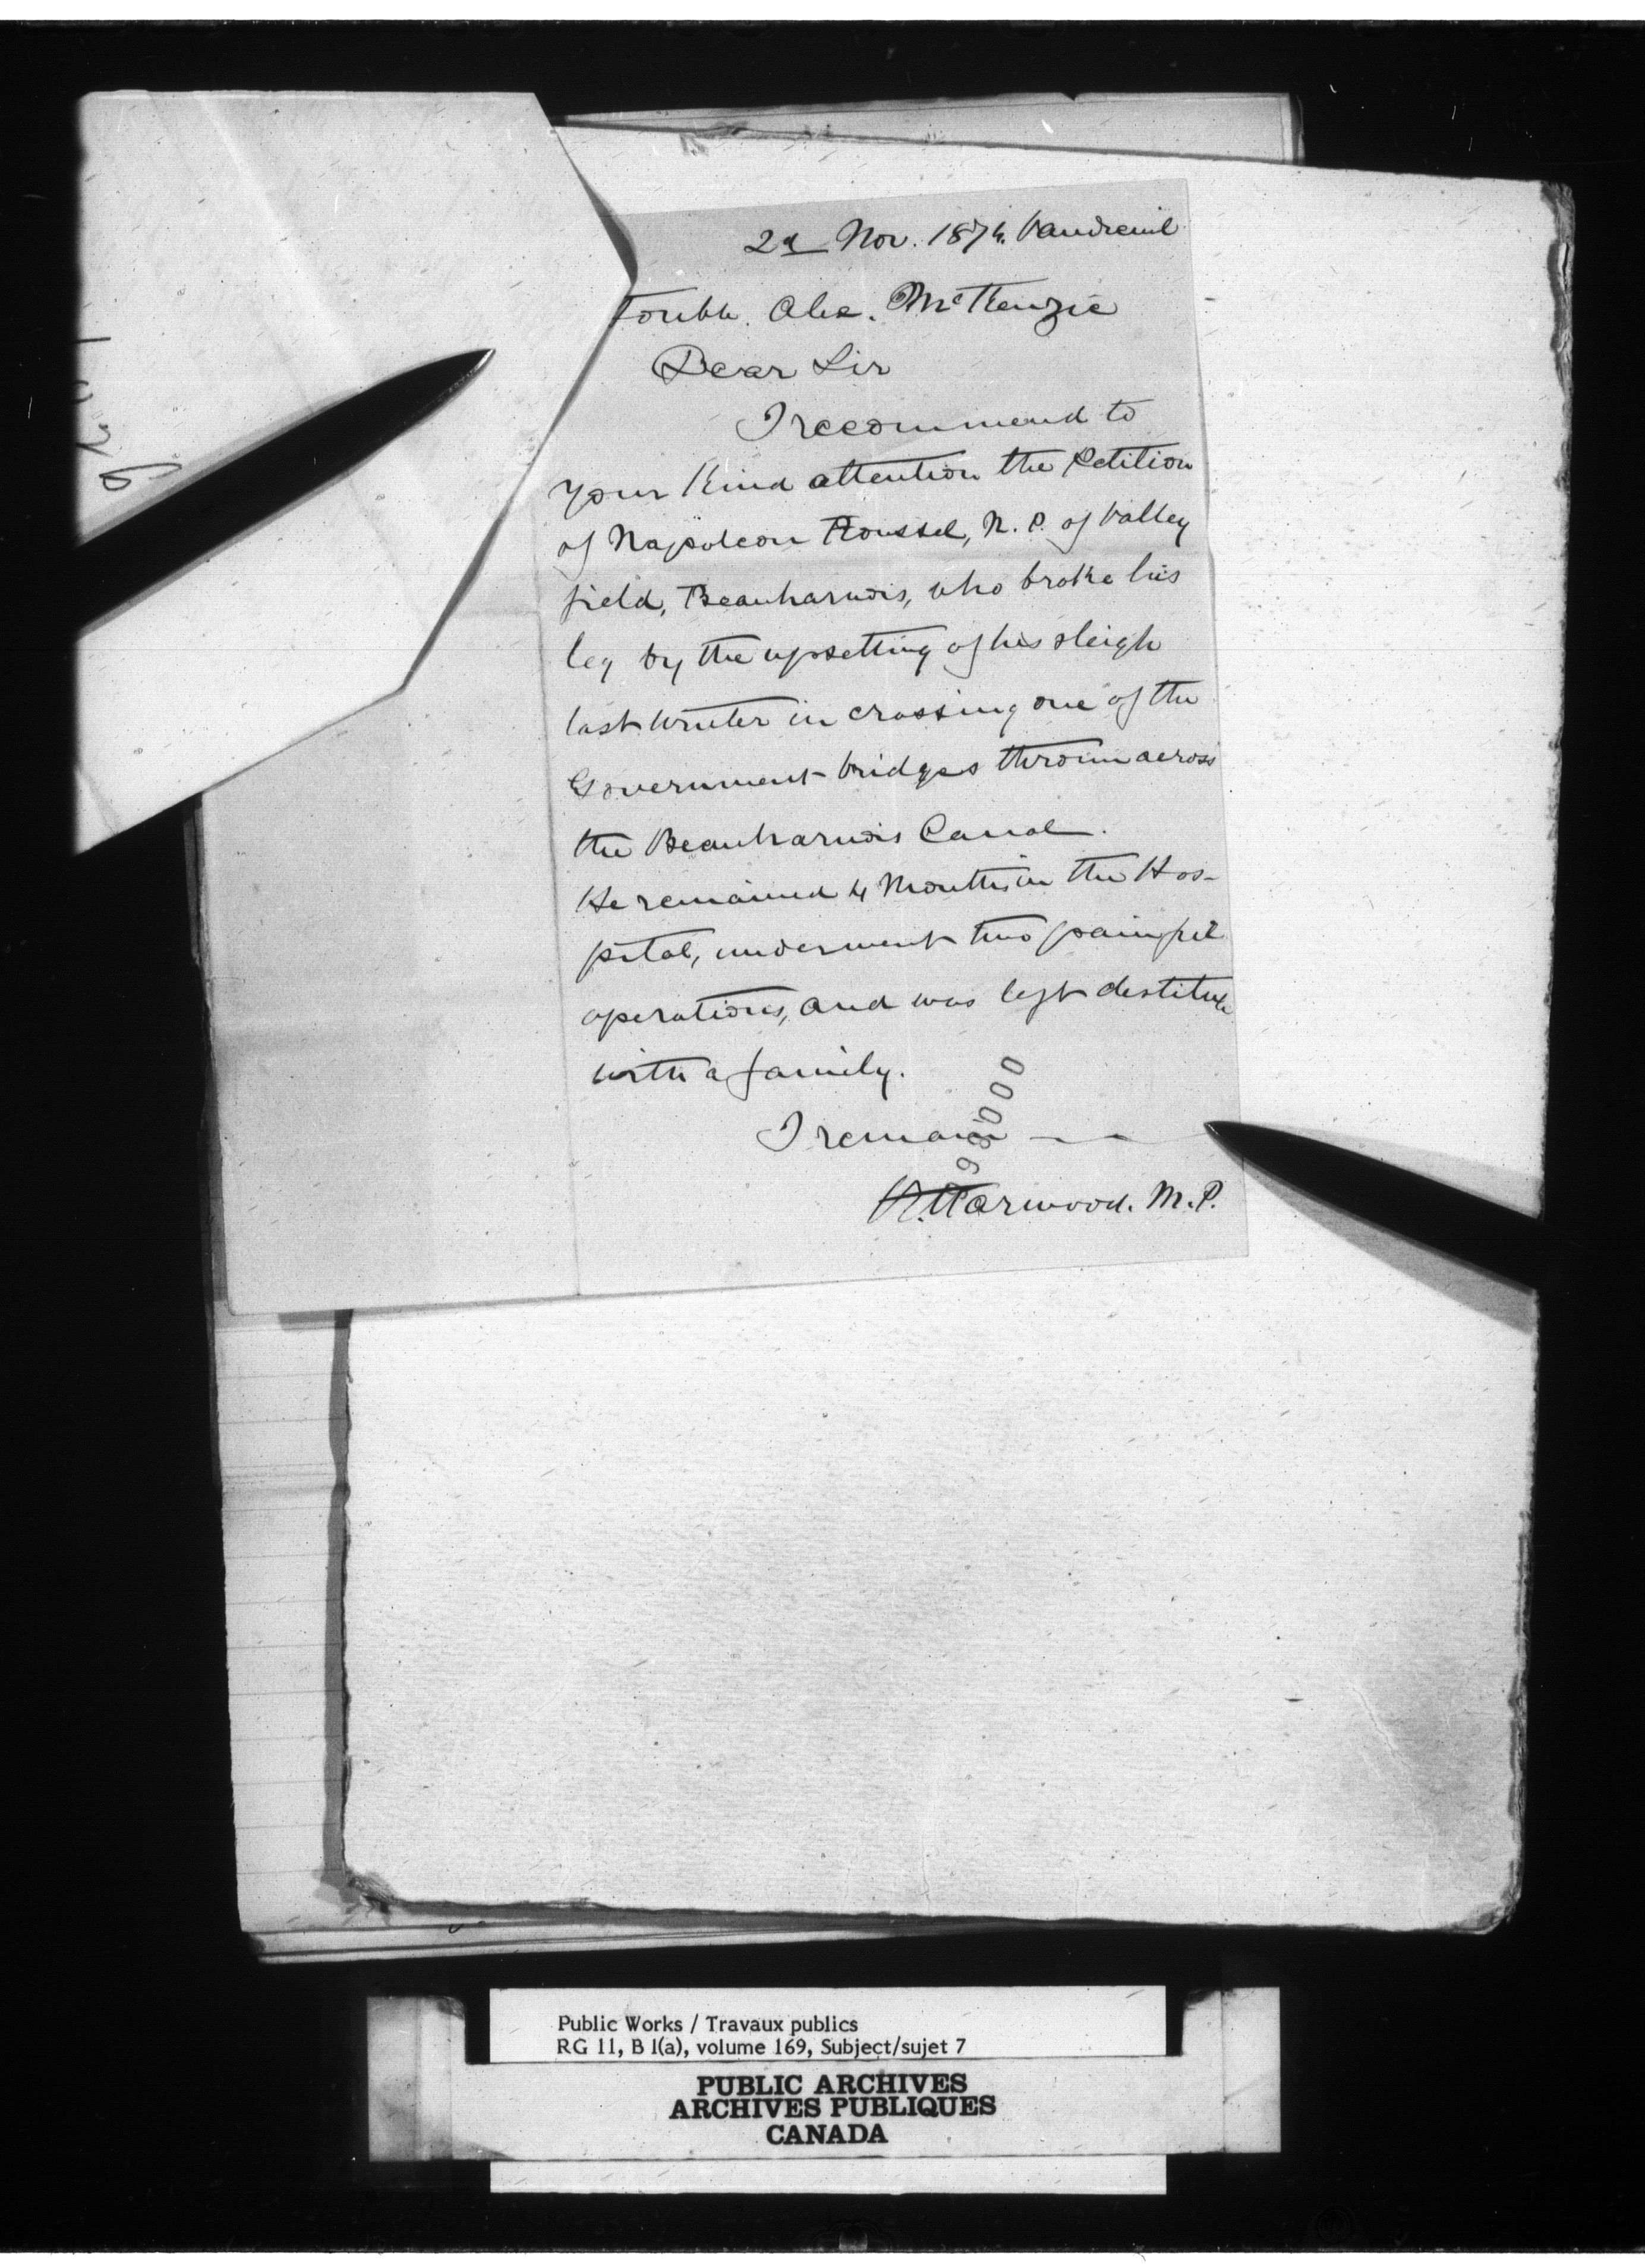 2d Nov. 1874. Vaudreuil
Alex. McKenzie
Dear Sir
I recommend to
your kind attention the Petition
of Napoleon Roussel, N. P. of Valley
field, Beauharnois, who broke his
leg by the upsetting of his sleigh
last winter in crossing one of the
Government bridges thrown across
the Beauharnois Canal.
He remained 4 Months in the Hos-
pital, underwent two painful
operations, and was left destitute
with a family.
I remain
Harwood. M.P.
Public Works / Travaux publics
RG 11, B 1(a), volume 169, Subject/sujet 7
PUBLIC ARCHIVES
ARCHIVES PUBLIQUES
CANADA